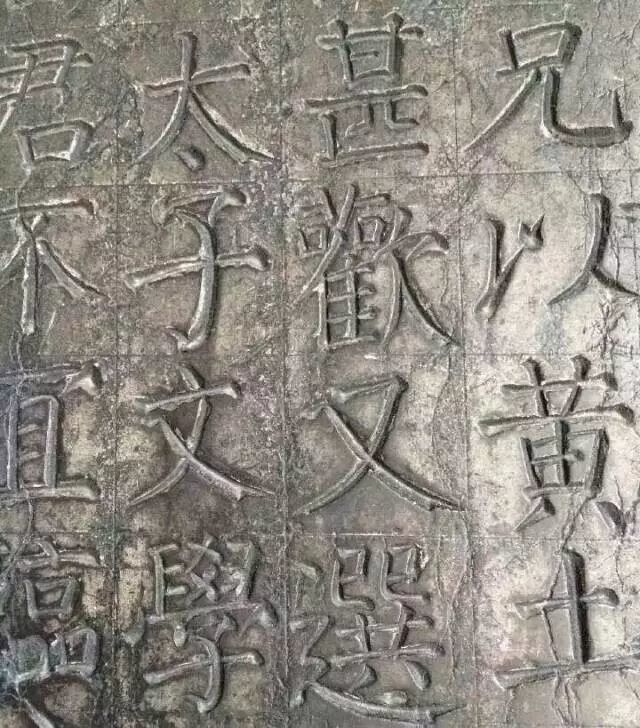 兄以黄土
甚歡又選
太子文學
君不宜